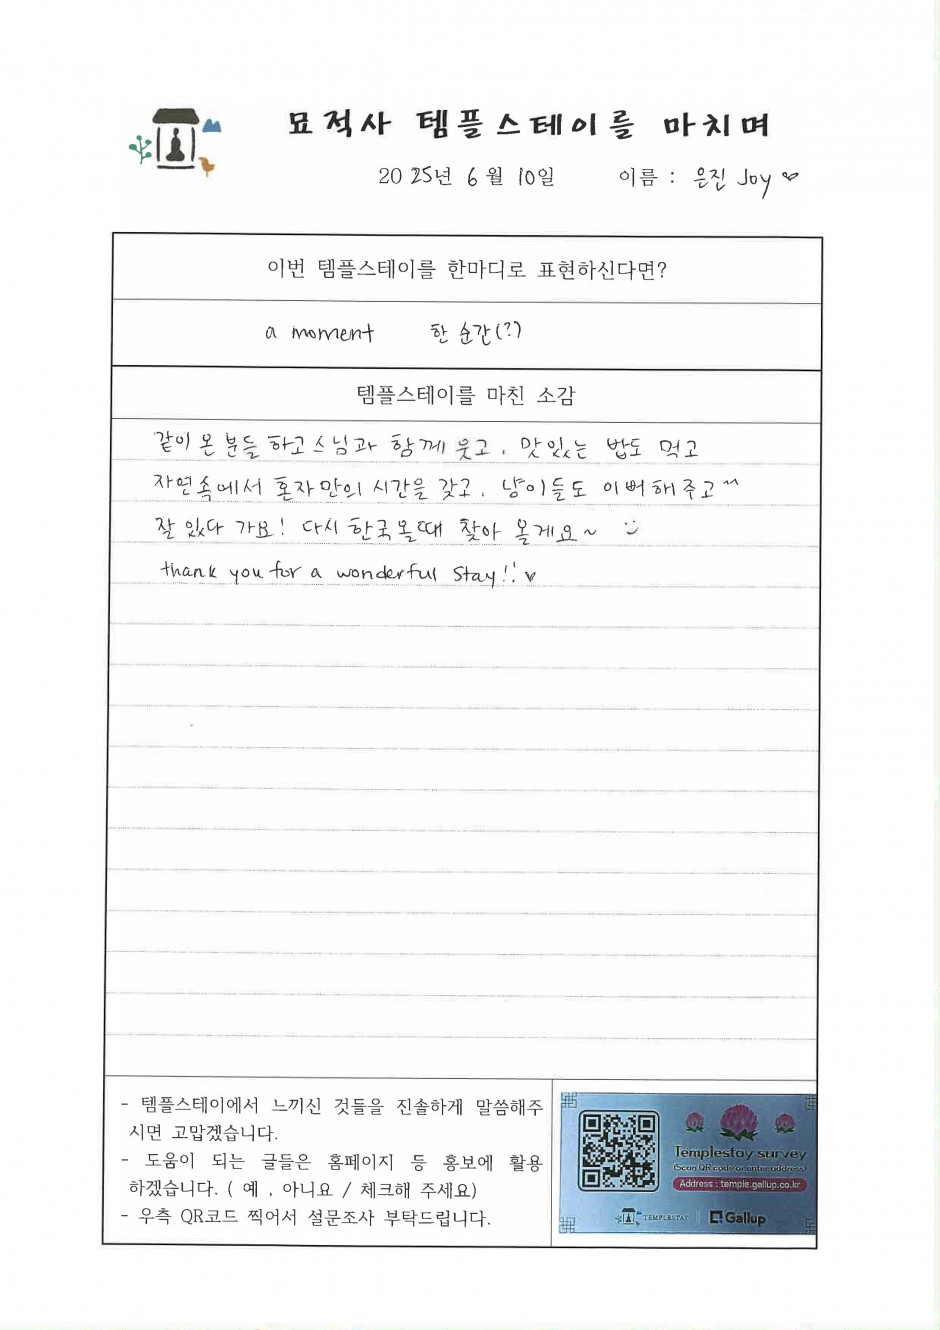 묘적사 템플스테이를 마치며
2025년 6월 10일 이름 : 은진 Joy ♡
이번 템플스테이를 한마디로 표현하신다면?
a moment 한 순간(?)
템플스테이를 마친 소감
같이 온 분들 하고 스님과 함께 웃고, 맛있는 밥도 먹고
자연속에서 혼자만의 시간을 갖고, 냥이들도 이뻐해주고^^
잘 있다 가요! 다시 한국올때 찾아 올게요~ :)
thank you for a wonderful stay!! ♥
- 템플스테이에서 느끼신 것들을 진솔하게 말씀해주
시면 고맙겠습니다.
- 도움이 되는 글들은 홈페이지 등 홍보에 활용
하겠습니다. ( 예 , 아니요 / 체크해 주세요)
- 우측 QR코드 찍어서 설문조사 부탁드립니다.
Templestay survey
(Scan QR code or enter address)
Address : temple.gallup.co.kr
TEMPLESTAY Gallup